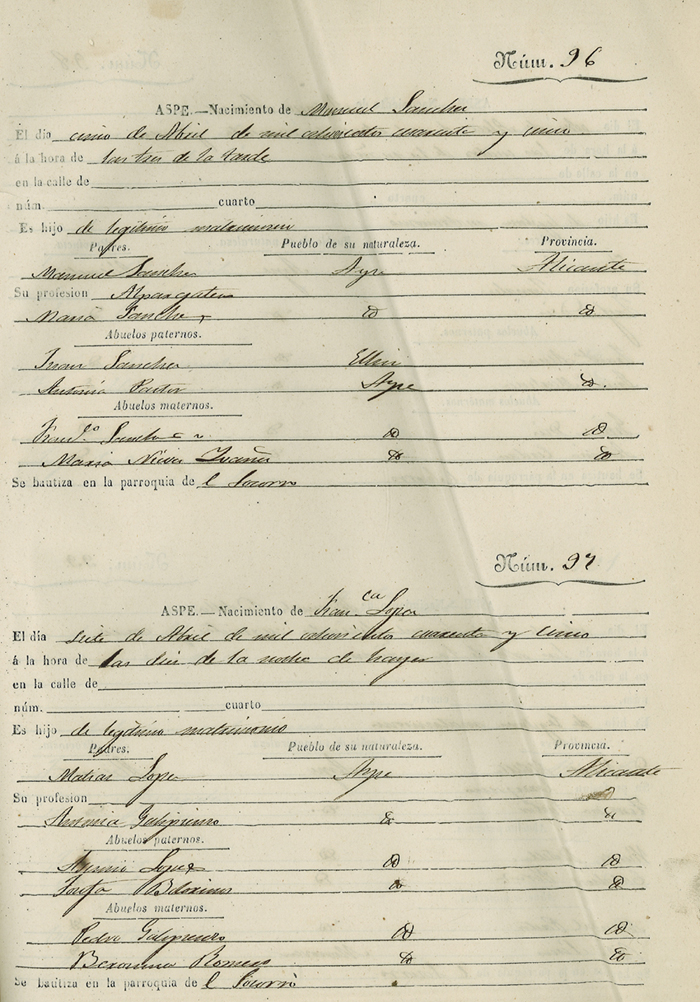 Núm. 96
ASPE.—Nacimiento de Manuel Sanchez
El dia cinco de Abril de mil ochocientos cuarenta y cinco
á la hora de las tres de la tarde
en la calle de
núm. cuarto
Es hijo de legitimo matrimonio
Padres. Pueblo de su naturaleza. Provincia.
Manuel Sanchez Aspe Alicante
Su profesion Alpargatero
Maria Sanchez id id
Abuelos paternos.
Juan Sanchez Ellin
Antonia Pastor Aspe id.
Abuelos maternos.
Fran.co Sanchez id id
Maria Nieves id id
Se bautiza en la parroquia de l Socorro
Núm. 97
ASPE.—Nacimiento de Fran.ca Lopez
El dia siete de Abril de mil ochocientos cuarenta y cinco
á la hora de las de la noche de
en la calle de
núm. cuarto
Es hijo de legitimo matrimonio
Padres. Pueblo de su naturaleza. Provincia.
Matias Lopez Aspe Alicante
Su profesion id
Antonia Galipienso id id
Abuelos paternos.
Lopez id id
Josefa id id
Abuelos maternos.
Pedro Galipienso id id
Romero id id
Se bautiza en la parroquia de l Socorro